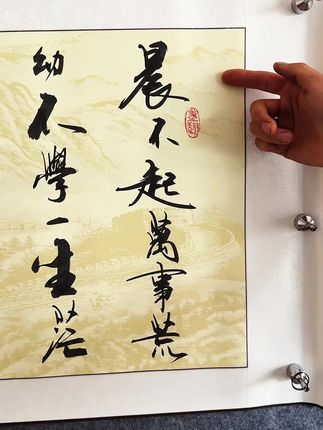 晨不起萬事荒
幼不學一生茫